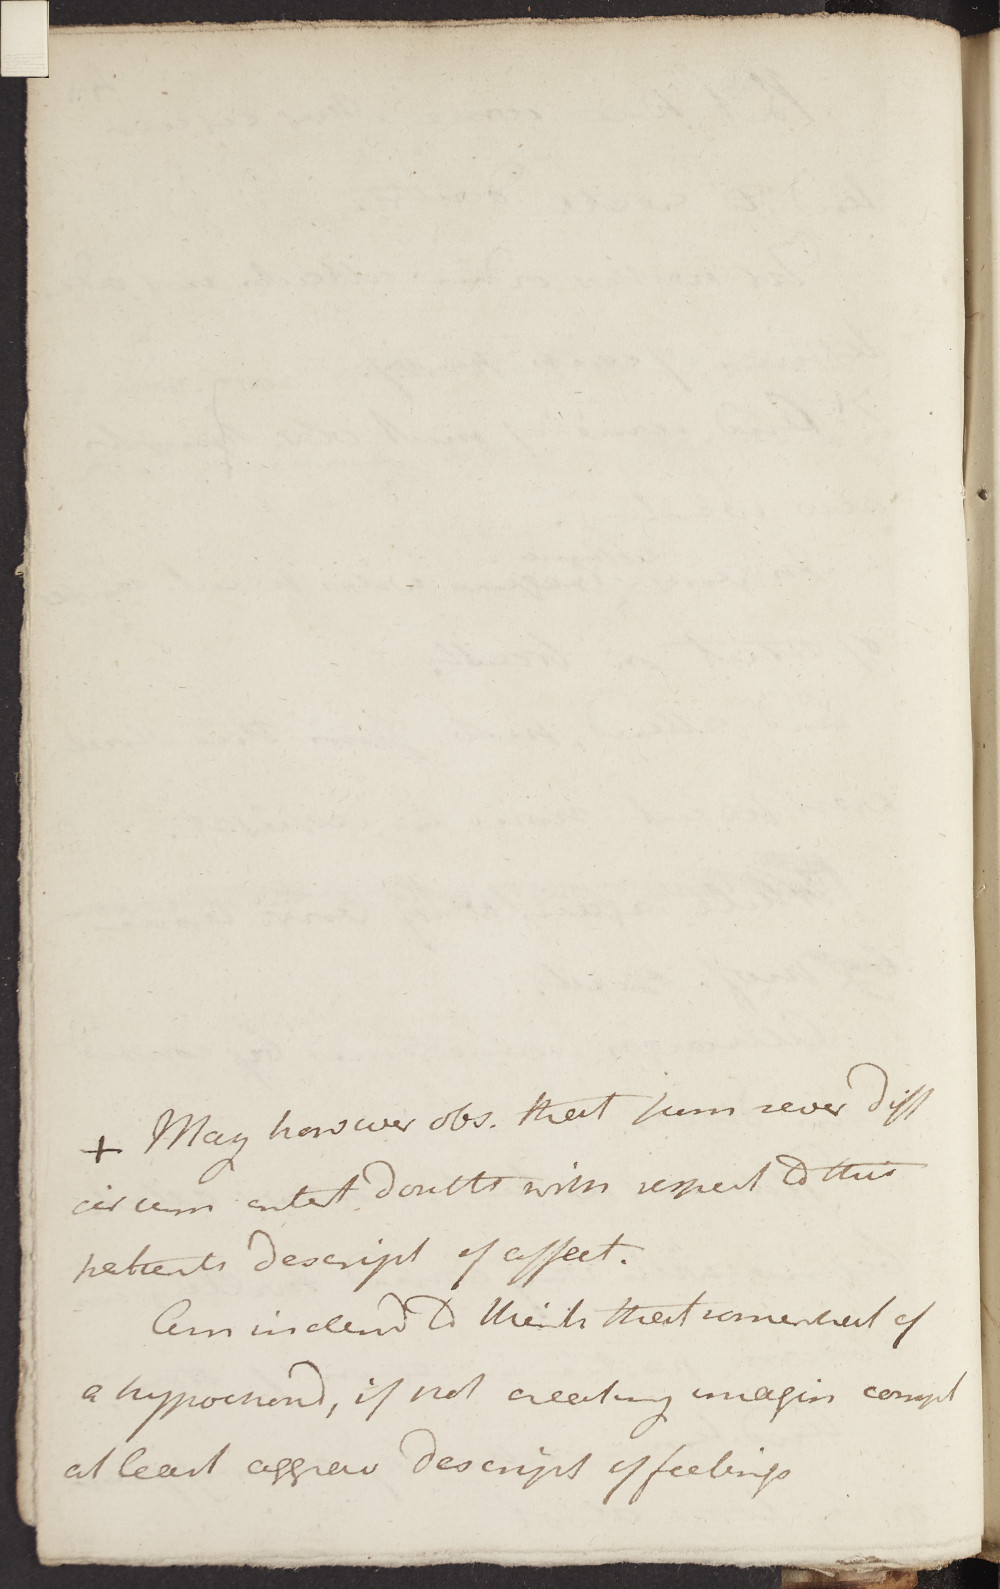 + May however obs. that from sever diff
circum entert doubts with respect to this
patients descript of affect.
Am inclend to think that somewhat of
a hypochond, if not creating imagin compl
at least aggrav descript of feelings